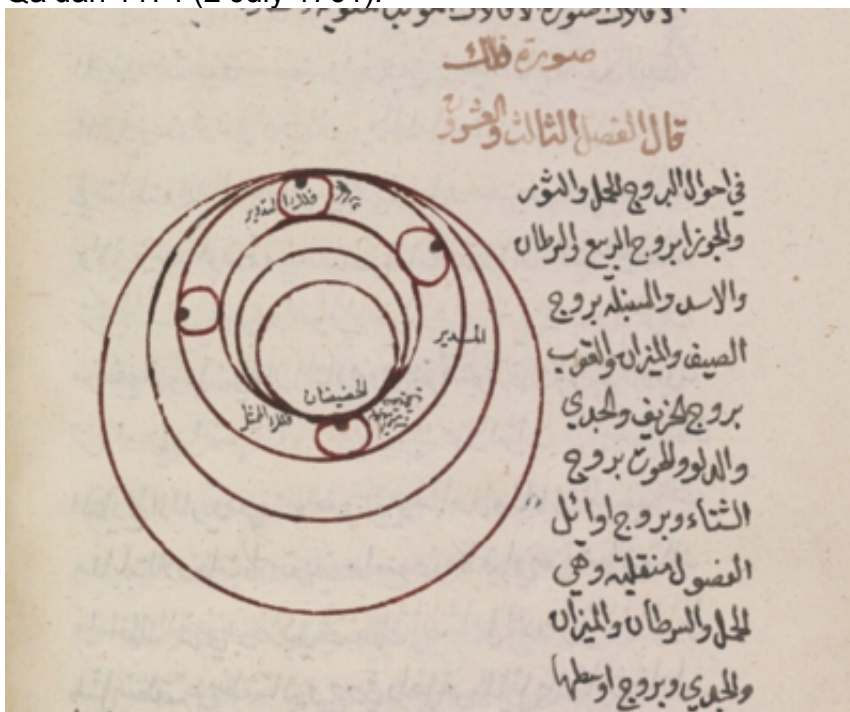 Qa'dah 1174 (2 July 1761).
صورة فلك
قال الفصل الثالث والعشرون
في احوال البروج الحمل والثور
والجوزا بروج الربيع والسرطان
والاسد والسنبلة بروج
الصيف والميزان والعقرب
بروج الخريف والجدي
والدلو والحوت بروج
الشتاء وبروج اوائل
الفصول منقلبة وهي
الحمل والسرطان والميزان
والجدي وبروج اوسطها
فلك التدوير
المدير
الحضيضان
فلك الممثل